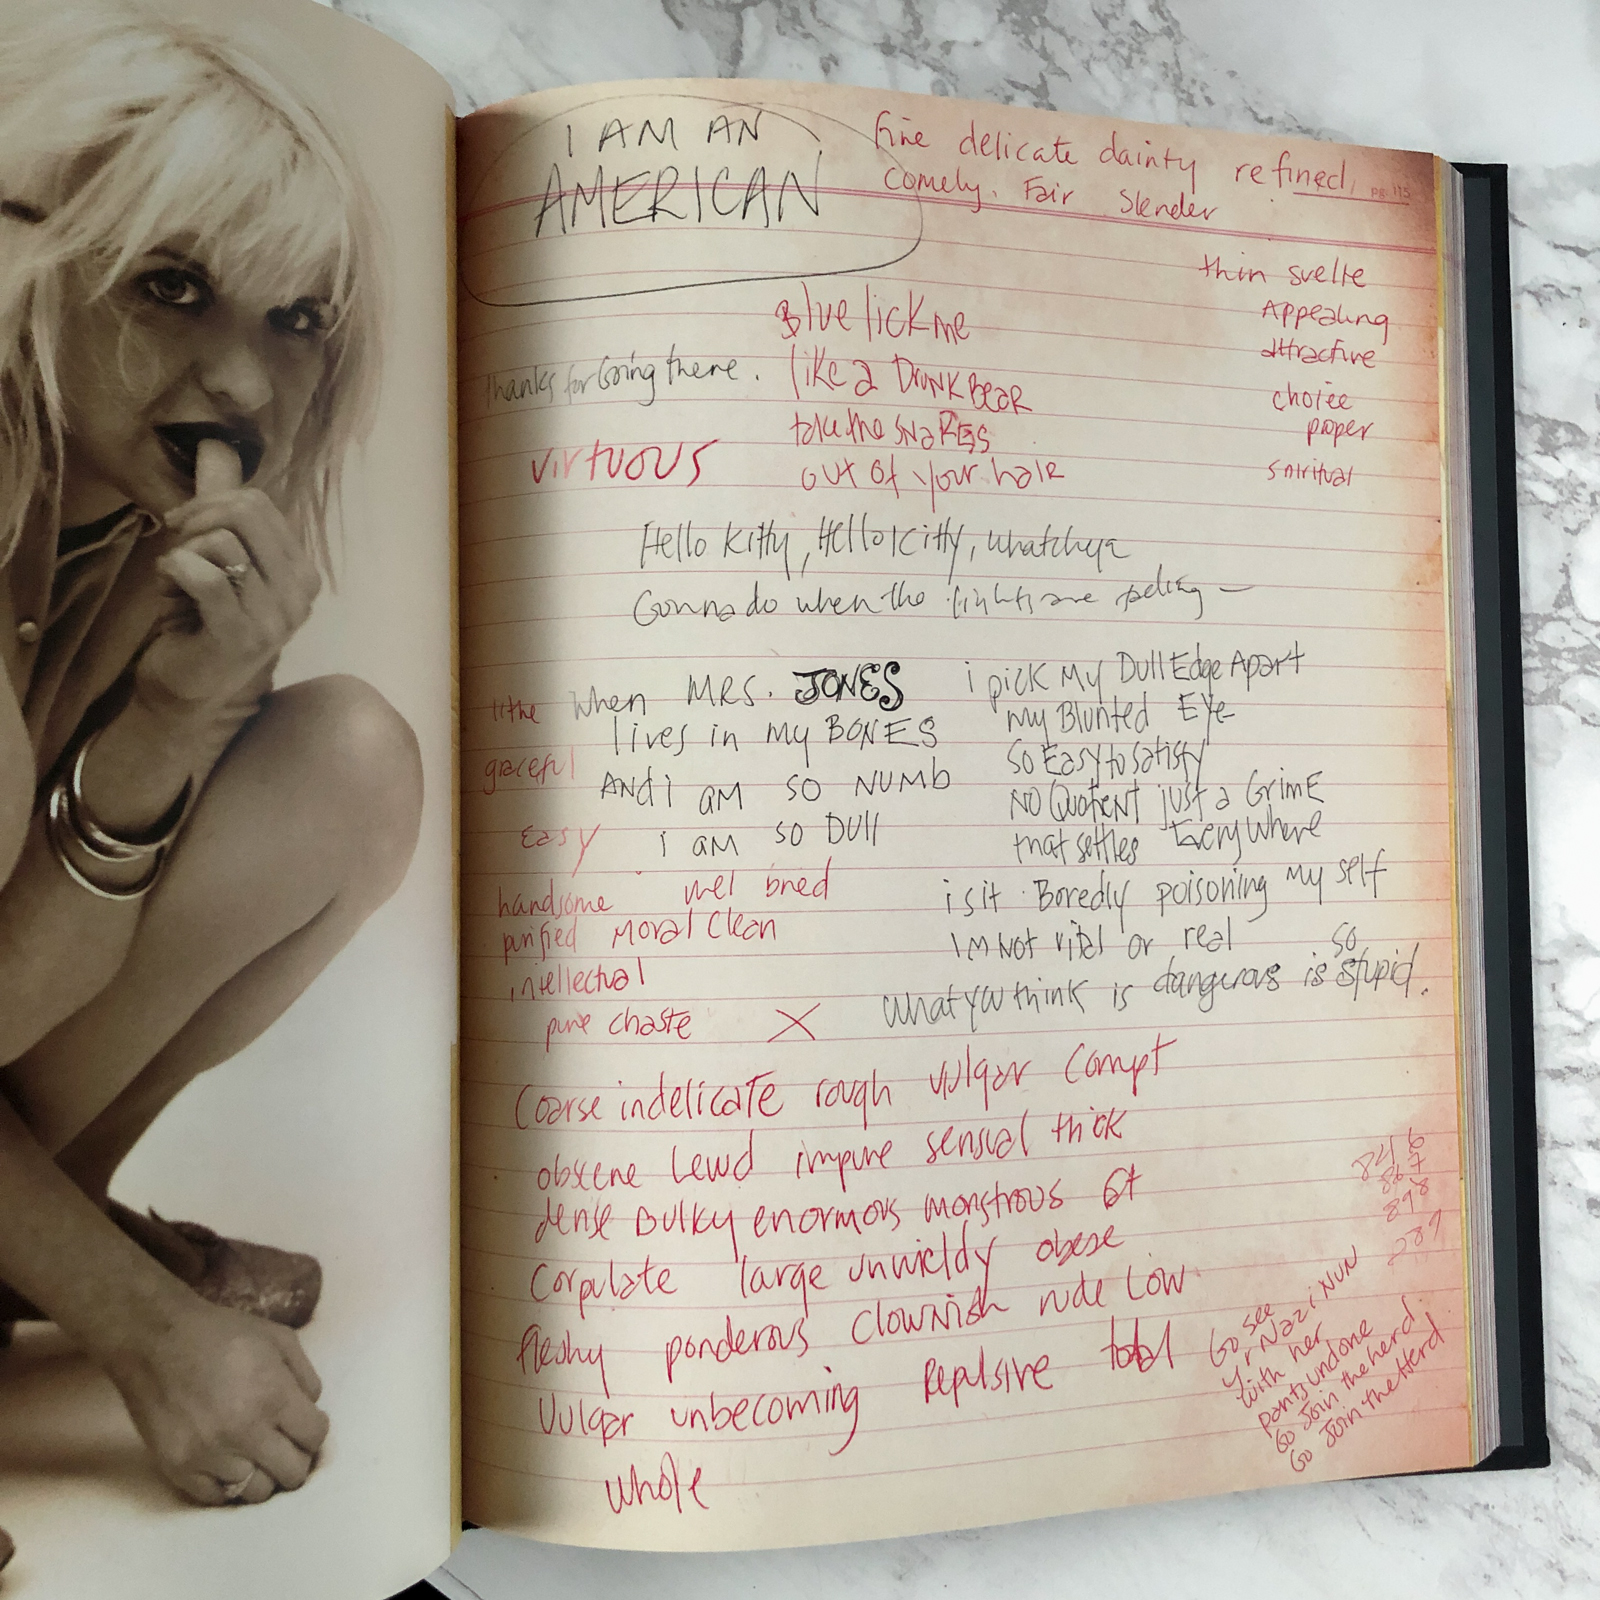 I AM AN
AMERICAN
fine delicate dainty refined,
Comely. Fair Slender
pg. 115
thin svelte
Appealing
attractive
choice
proper
spiritual
Blue lick me
like a DrUNK BeaR
take the SNaKES
out of your hair
thanks for Going there.
VirTUOUS
Hello Kitty, Hello Kitty, whatchya
Gonna do when the lights are
When MRS. JONES
lives in my BONES
ANd i aM so NUMb
i aM so DUll
lithe
graceful
Easy
handsome well bred
purified Moral Clean
intellectual
pure chaste X
i pick My Dull Edge Apart
my Blunted Eye
so Easy to satisfy
NO QuotieNT just a GrimE
that settles EveryWhere
is it Boredly poisoning My self
I'm Not vital or real
what you think is dangerous is so stupid.
Coarse indelicaTE rough vulgar Corrupt
obscene lewd impure sensual thick
dense BULKY enormous monstrous fat
Corpulate large unwieldy obese
fleshy ponderous ClowNish rude Low
Vulgar unbecoming Repulsive total
whole
867
898
289
Go see
Yr Nazi NUN
with her
pants undone
Go Join the herd
Go Join the Herd